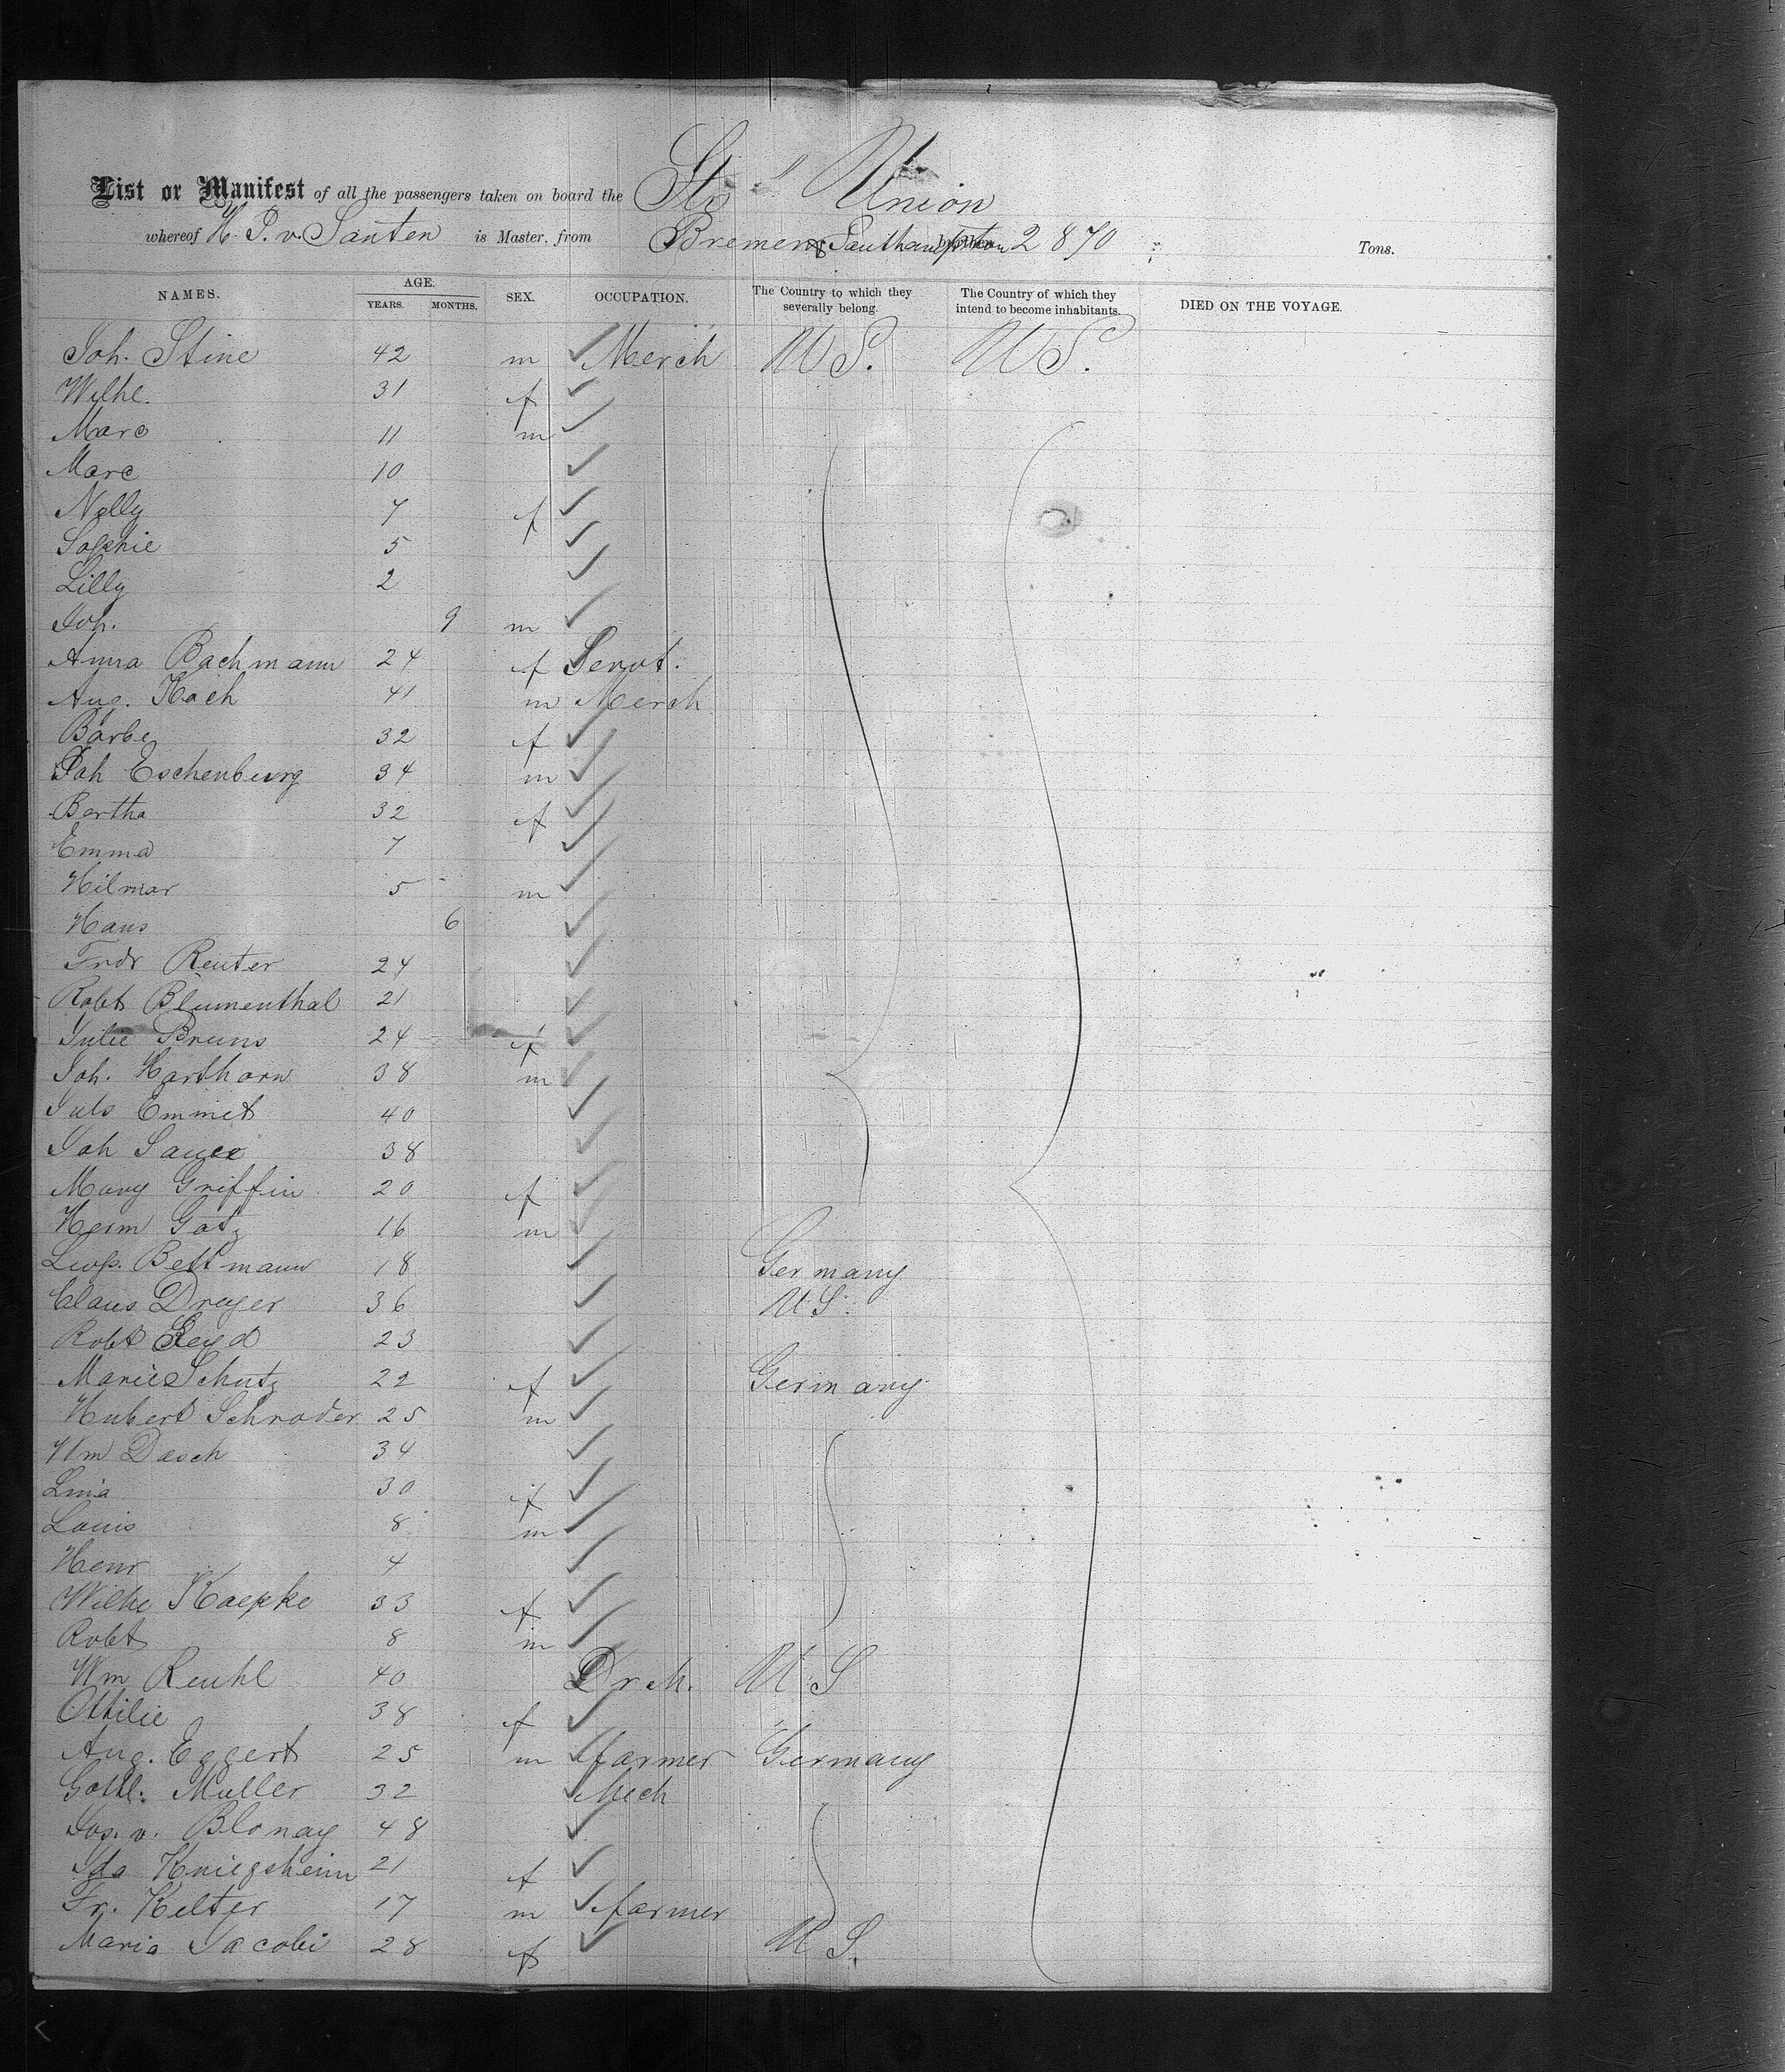 List or Manifest of all the passengers taken on board the Str " Union
whereof H. J. v. Santen is Master, from Bremen & Southampton burthen 2870 Tons.
NAMES. AGE. YEARS. MONTHS. SEX. OCCUPATION. The Country to which they severally belong. The Country of which they intend to become inhabitants. DIED ON THE VOYAGE.
Joh. Stine 42 m Merch U S. U S.
Wilhe. 31 f
Marc 11 m
Marc 10
Nelly 7 f
Sophie 5
Lilly 2
Joh. 9 m
Anna Bachmann 24 f Servt.
Aug. Koch 41 m Merch
Barbe 32 f
Joh Eschenburg 34 m
Bertha 32 f
Emma 7
Hilmar 5 m
Hans 6
Frdr Reuter 24
Robt Blumenthal 21
Julie Bruns 24 f
Joh. Harthorn 38 m
Juls Emmet 40
Joh 38
Mary Griffin 20 f
Herm Gotz 16 m
Leop. Bettmann 18 Germany
Claus Dreyer 36 U S.
Robt 23
Marie Schutz 22 f Germany
Hubert Schroder 25 m
Wm Dasch 34
Lina 30 f
Louis 8 m
Henr 4
Wilhe Koepke 33 f
Robt 8 m
Wm Reuhl 40 U S
Ottilie 38 f
Aug. Eggert 25 m farmer Germany
Gottl. Muller 32 Mech
Jos. v. Blonay 48
Ida Kriegsheim 21 f
Fr. Kelter 17 m farmer
Maria Jacobi 28 f U S.